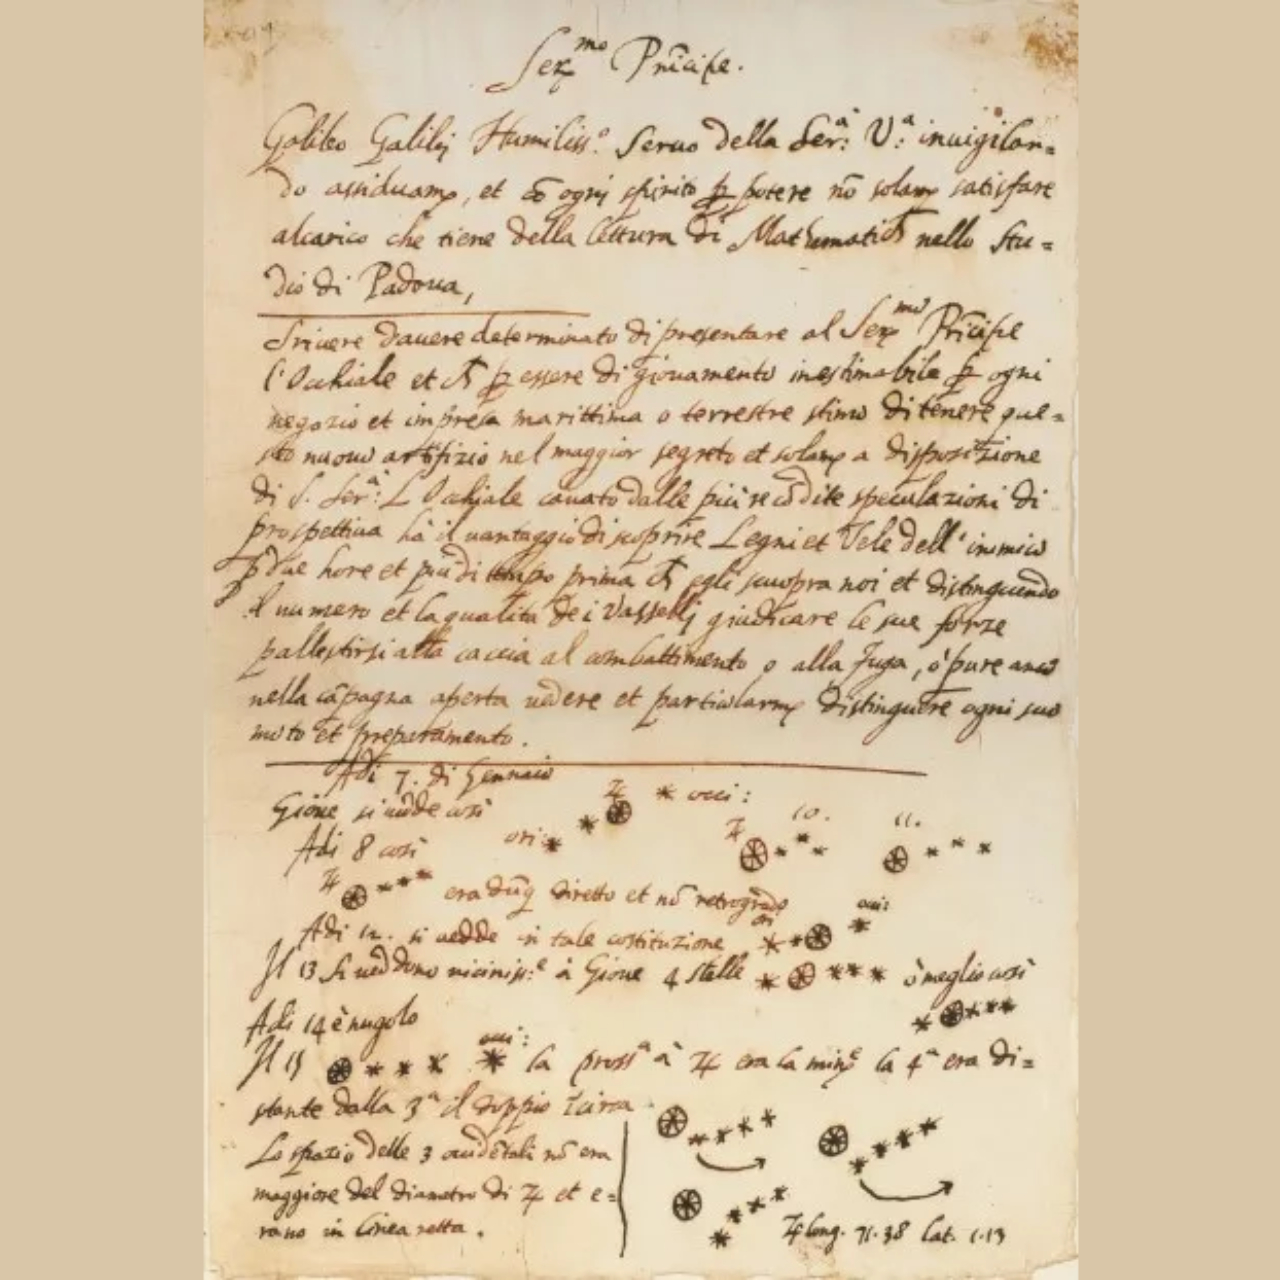 Ser.mo Prĩcipe.
Galileo Galilej Humiliss.o Seruo della Ser.a V.a inuigilan=
do assiduam.e, et cõ ogni spirito p potere nõ solam.e satisfare
alcarico che tiene della lettura di Mathematich nello Stu=
dio di Padoua,
Sriuere dauere determinato di presentare al Ser.mo Prĩcipe
l'Occhiale et ch p essere di giouamento inestimabile p ogni
negozio et impresa marittima o terrestre stimo di tenere que=
sto nuouo artifizio nel maggior segreto et solam.e a disposizione
di S. Ser.a: L'Occhiale cauato dalle più recõdite speculazioni di
prospettiua ha il uantaggio di scoprire Legni et Vele dell'inimico
p due hore et più di tempo prima ch egli scuopra noi et distinguendo
il numero et la qualita de i Vasselli giudicare le sue forze
pallestirsi alla caccia al combattimento o alla fuga, ò pure anco
nella cãpagna aperta uedere et particolarm.e distinguere ogni suo
moto et preparamento.
Adi 7. di Gennaio
Gioue si uedde cosi ♃ * occi:
Adi 8 cosi ori: ♃ 10. 11.
♃ era dũq diretto et nõ retrogrado
Adi 12. si uedde in tale costituzione ori occi:
Il 13 si ueddono uiciniss.e à Gioue 4 stelle ò meglio cosi
Adi 14 è nugolo
Il 15 occi: la pross.a à ♃ era la min.e la 4.a era di=
stante dalla 3.a il doppio ĩcirca
Lo spazio delle 3 occidẽtali nõ era
maggiore del diametro di ♃ et e=
rano in linea retta.
♃ long. 71.38 lat. 1.13